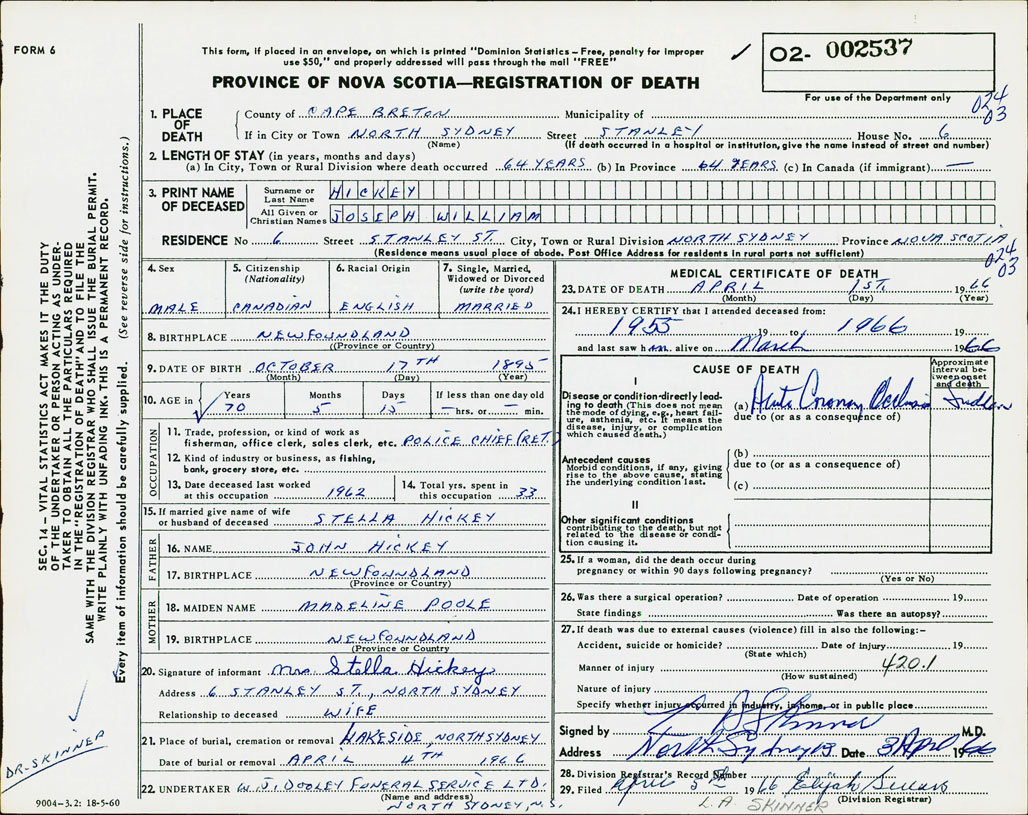 FORM 6
This form, if placed in an envelope, on which is printed "Dominion Statistics – Free, penalty for improper
use $50," and properly addressed will pass through the mail "FREE"
PROVINCE OF NOVA SCOTIA—REGISTRATION OF DEATH
✓ O2- 002537
For use of the Department only
024
03
1. PLACE OF DEATH
County of CAPE BRETON Municipality of
If in City or Town NORTH SYDNEY Street STANLEY House No. 6
(Name) (If death occurred in a hospital or institution, give the name instead of street and number)
2. LENGTH OF STAY (in years, months and days)
(a) In City, Town or Rural Division where death occurred 64 YEARS (b) In Province 64 YEARS (c) In Canada (if immigrant) —
3. PRINT NAME OF DECEASED
Surname or Last Name HICKEY
All Given or Christian Names JOSEPH WILLIAM
RESIDENCE No 6 Street STANLEY ST. City, Town or Rural Division NORTH SYDNEY Province NOVA SCOTIA
(Residence means usual place of abode. Post Office Address for residents in rural parts not sufficient)
024
03
4. Sex
MALE
5. Citizenship (Nationality)
CANADIAN
6. Racial Origin
ENGLISH
7. Single, Married, Widowed or Divorced (write the word)
MARRIED
8. BIRTHPLACE NEWFOUNDLAND
(Province or Country)
9. DATE OF BIRTH OCTOBER 17TH 1895
(Month) (Day) (Year)
10. AGE in Years Months Days If less than one day old
✓ 70 5 15 — hrs. or — min.
OCCUPATION
11. Trade, profession, or kind of work as
fisherman, office clerk, sales clerk, etc. POLICE CHIEF (RET.)
12. Kind of industry or business, as fishing,
bank, grocery store, etc.
13. Date deceased last worked at this occupation 1962
14. Total yrs. spent in this occupation 33
15. If married give name of wife
or husband of deceased STELLA HICKEY
FATHER
16. NAME JOHN HICKEY
17. BIRTHPLACE NEWFOUNDLAND
(Province or Country)
MOTHER
18. MAIDEN NAME MADELINE POOLE
19. BIRTHPLACE NEWFOUNDLAND
(Province or Country)
20. Signature of informant Mrs Stella Hickey
Address 6 STANLEY ST., NORTH SYDNEY
Relationship to deceased WIFE
21. Place of burial, cremation or removal LAKESIDE, NORTH SYDNEY
Date of burial or removal APRIL 4TH 1966
22. UNDERTAKER W. J. DOOLEY FUNERAL SERVICE LTD.
(Name and address)
NORTH SYDNEY, N.S.
MEDICAL CERTIFICATE OF DEATH
23. DATE OF DEATH APRIL 1ST. 1966
(Month) (Day) (Year)
24. I HEREBY CERTIFY that I attended deceased from:
1955 19 to 1966 19
and last saw him alive on March 1966
CAUSE OF DEATH
Approximate interval between onset and death
I
Disease or condition directly leading to death (This does not mean
the mode of dying, e.g., heart failure, asthenia, etc. It means the
disease, injury, or complication
which caused death.)
(a) Acute Coronary Occlusion Sudden
due to (or as a consequence of)
Antecedent causes
Morbid conditions, if any, giving
rise to the above cause, stating
the underlying condition last.
(b)
due to (or as a consequence of)
(c)
II
Other significant conditions
contributing to the death, but not
related to the disease or condition causing it.
25. If a woman, did the death occur during
pregnancy or within 90 days following pregnancy?
(Yes or No)
26. Was there a surgical operation? Date of operation 19
State findings Was there an autopsy?
27. If death was due to external causes (violence) fill in also the following:–
Accident, suicide or homicide? Date of injury 19
(State which)
Manner of injury 420.1
(How sustained)
Nature of injury
Specify whether injury occurred in industry, in home, or in public place
Signed by Skinner M.D.
Address North Sydney Date 3 April 1966
28. Division Registrar's Record Number
29. Filed April 5th 1966 Elijah
(Division Registrar)
L.A SKINNER
SEC. 14 – VITAL STATISTICS ACT MAKES IT THE DUTY
OF THE UNDERTAKER OR PERSON ACTING AS UNDERTAKER TO OBTAIN ALL THE PARTICULARS REQUIRED
IN THE "REGISTRATION OF DEATH" AND TO FILE THE
SAME WITH THE DIVISION REGISTRAR WHO SHALL ISSUE THE BURIAL PERMIT.
WRITE PLAINLY WITH UNFADING INK. THIS IS A PERMANENT RECORD.
Every item of information should be carefully supplied. (See reverse side for instructions.)
DR. SKINNER
9004–3.2: 18-5-60